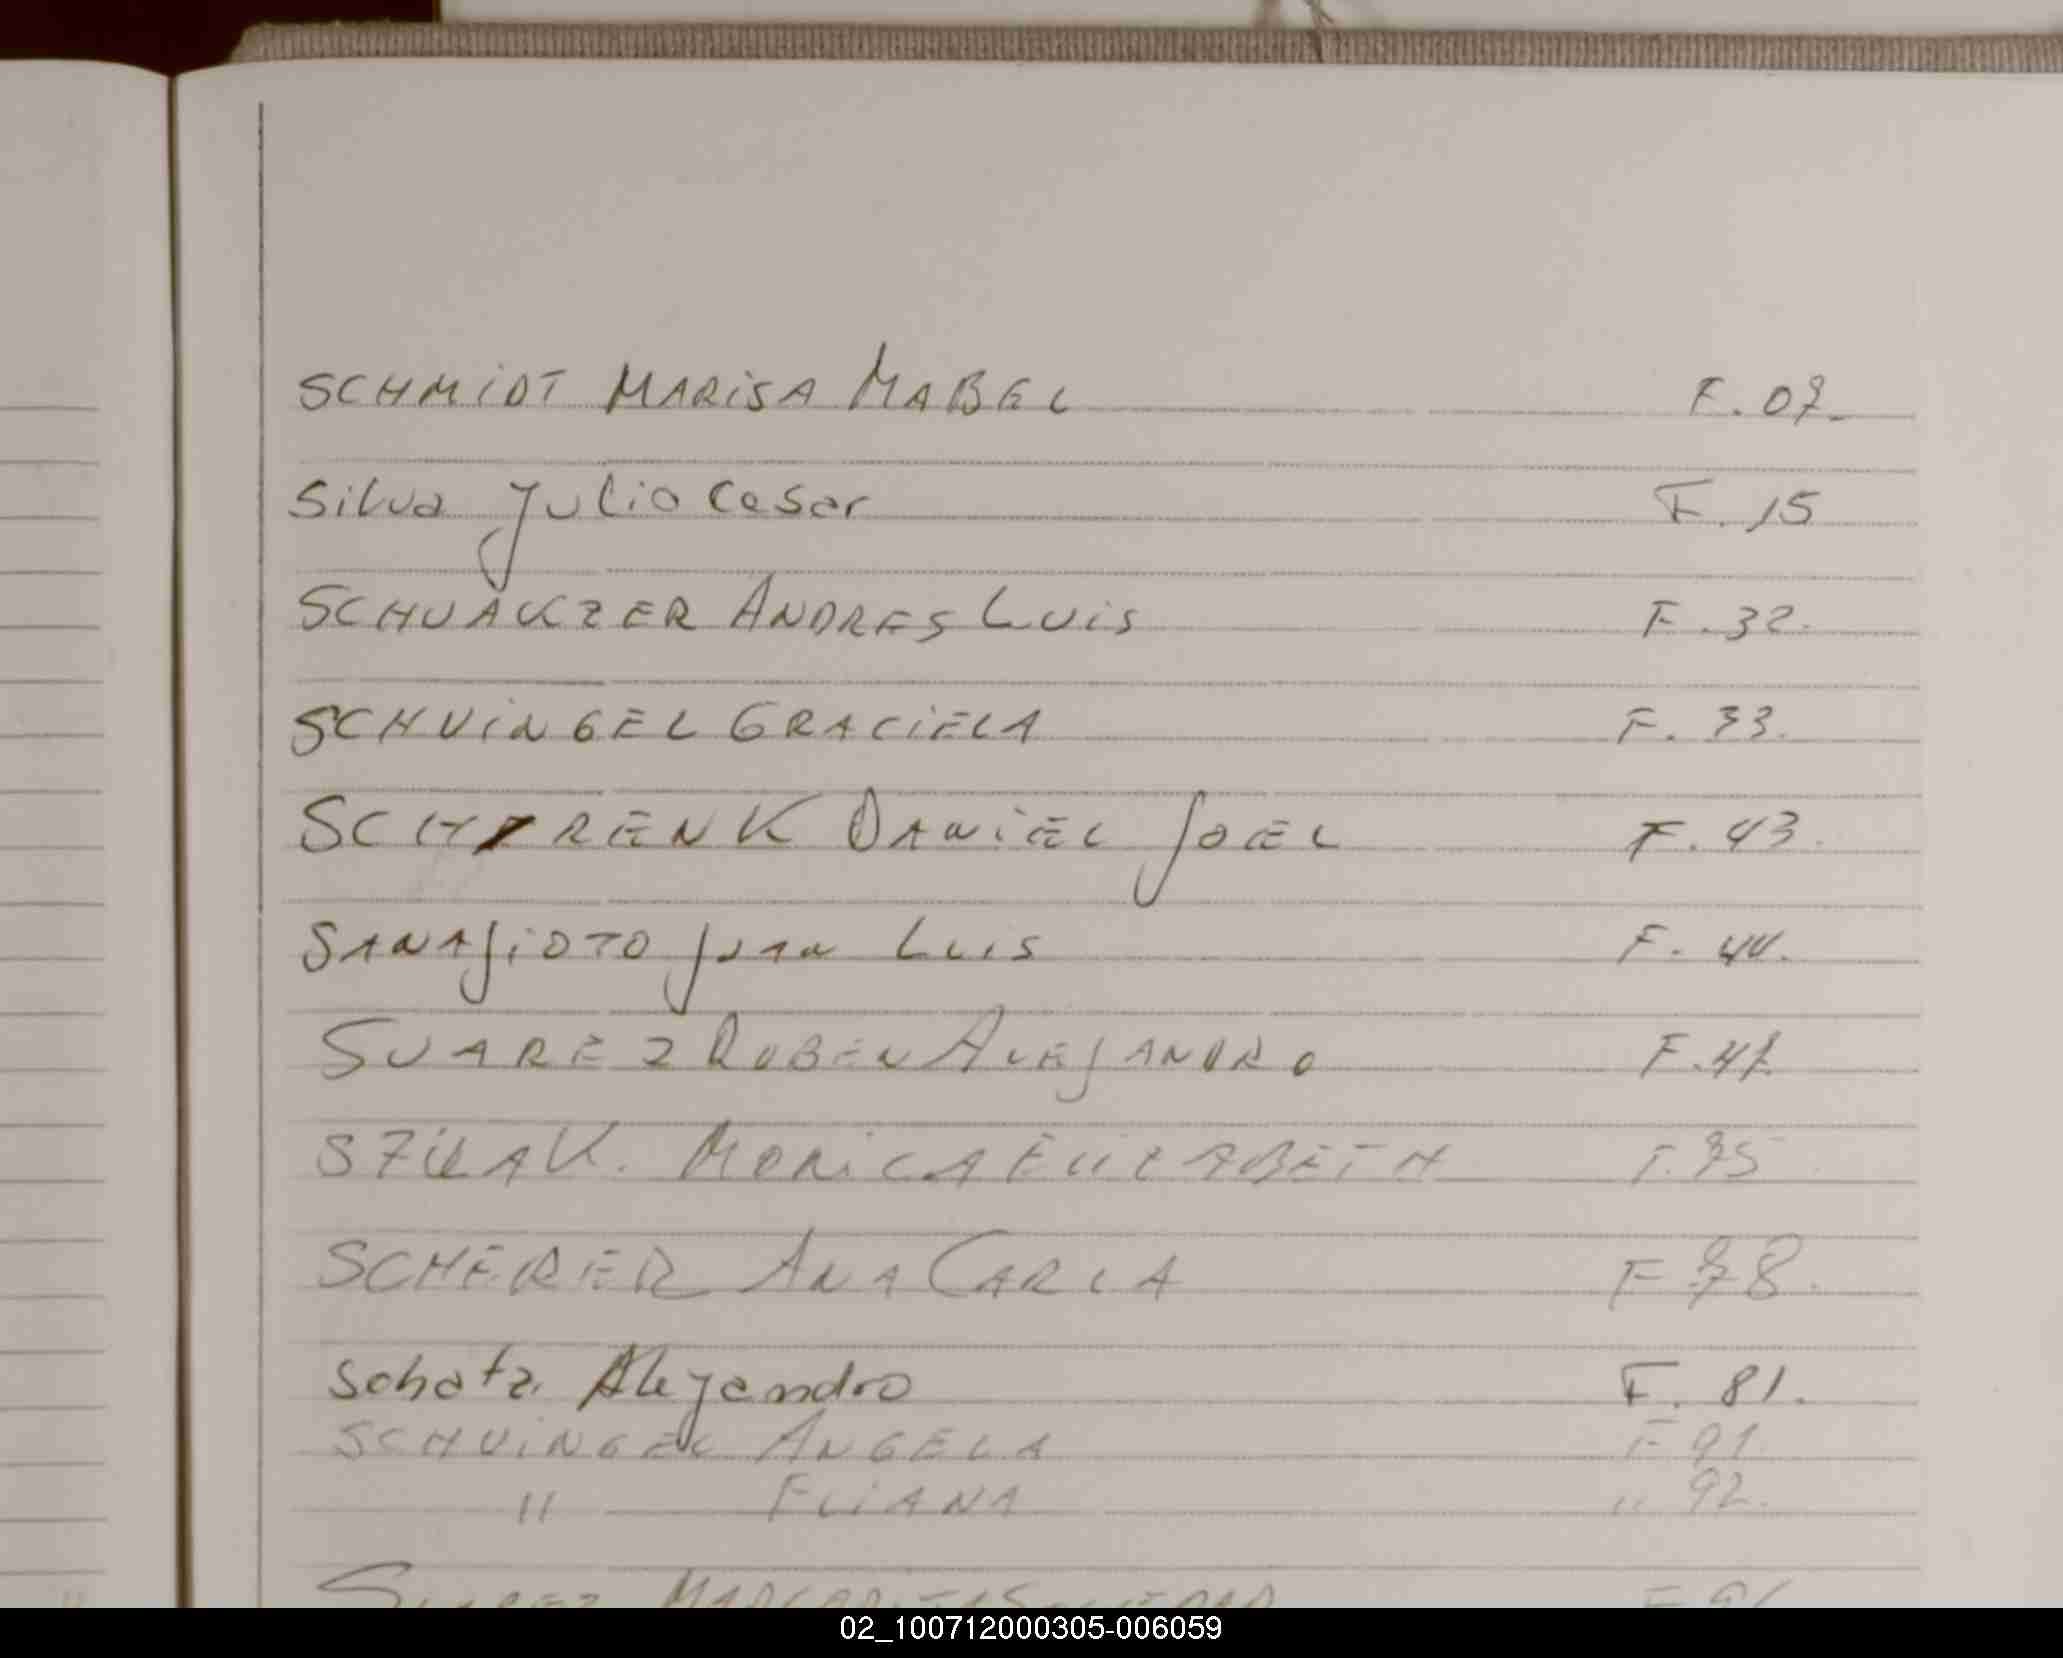 SCHMIDT MARISA MABEL F. 07.
Silva Julio Cesar F. 15
SCHUAKZER ANDRES LUIS F. 32.
SCHUINGEL GRACIELA F. 33.
SCHRENK DANIEL JOEL F. 43.
SANAJIOTO JUAN LUIS F. 44.
SUAREZ RUBEN ALEJANDRO F. 47
MONICA ELIZABETH F. 75
SCHERER ANA CARLA F 78.
Schatz Alejandro F. 81.
SCHUINGEL ANGELA F 91.
" ELIANA " 92.
SUAREZ MARGARITA SOLEDAD F
02_100712000305-006059